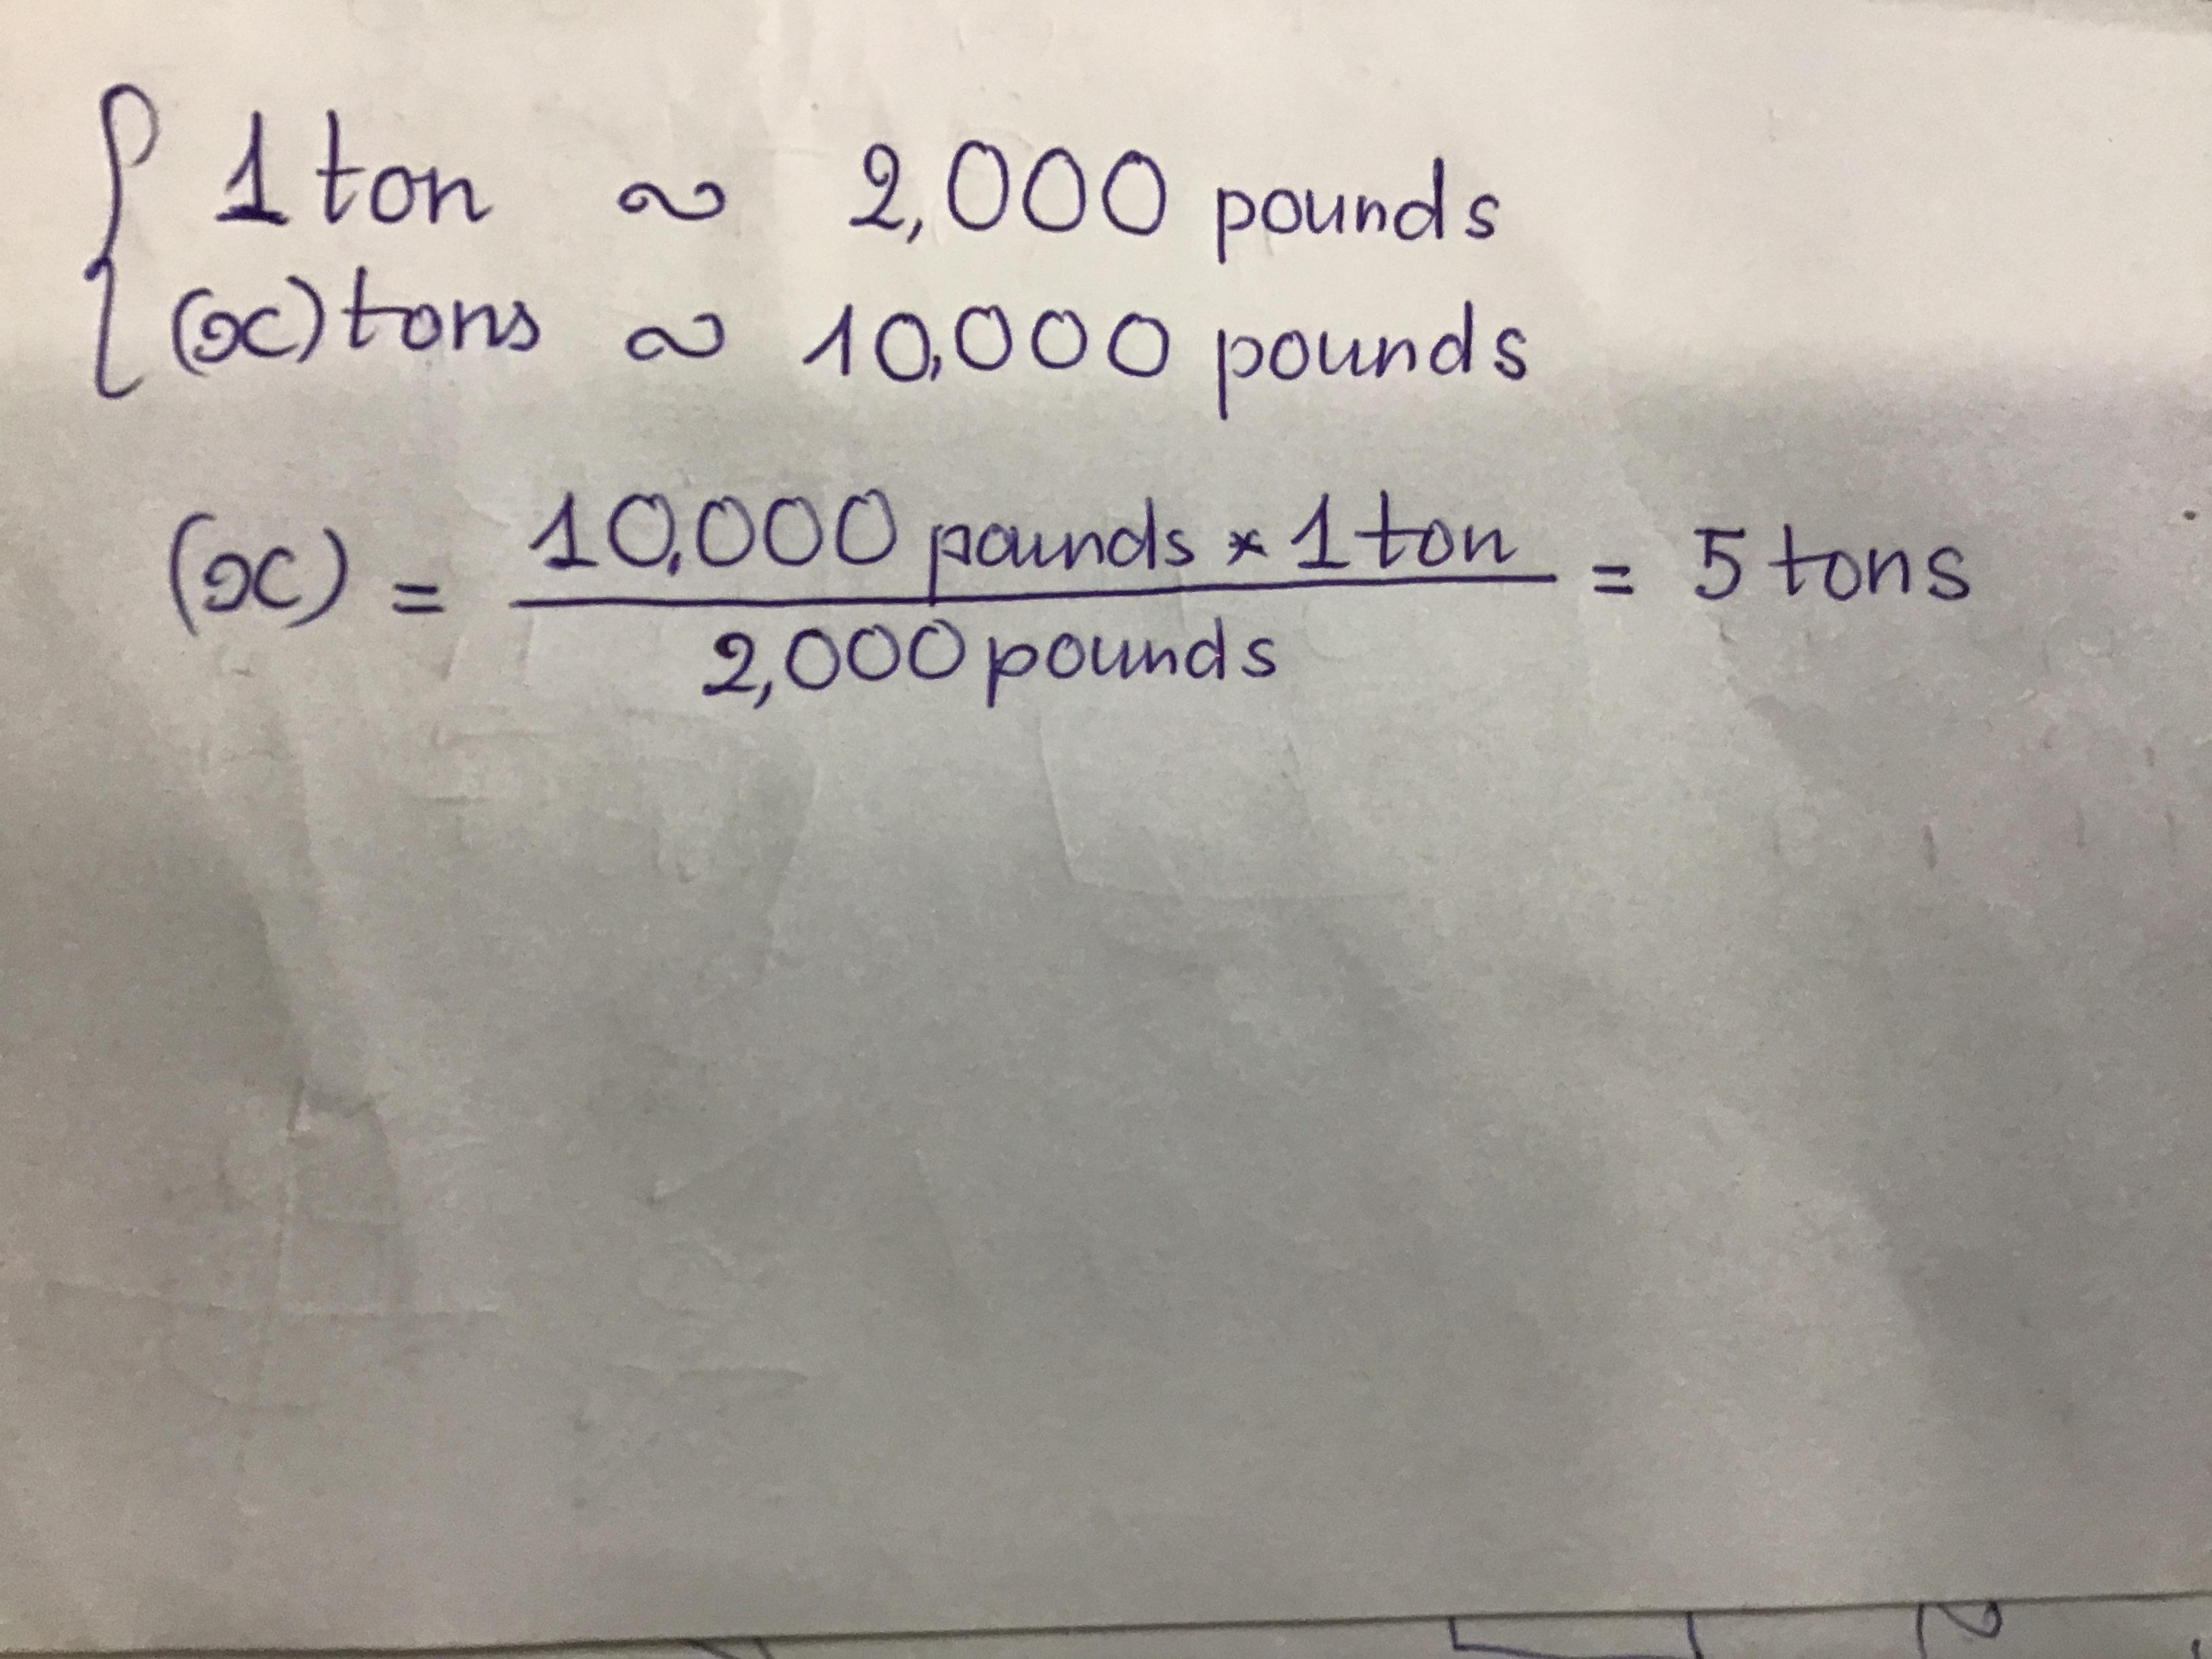 1 ton ~ 2,000 pounds
(x) tons ~ 10,000 pounds
(x) = 10,000 pounds * 1 ton / 2,000 pounds = 5 tons